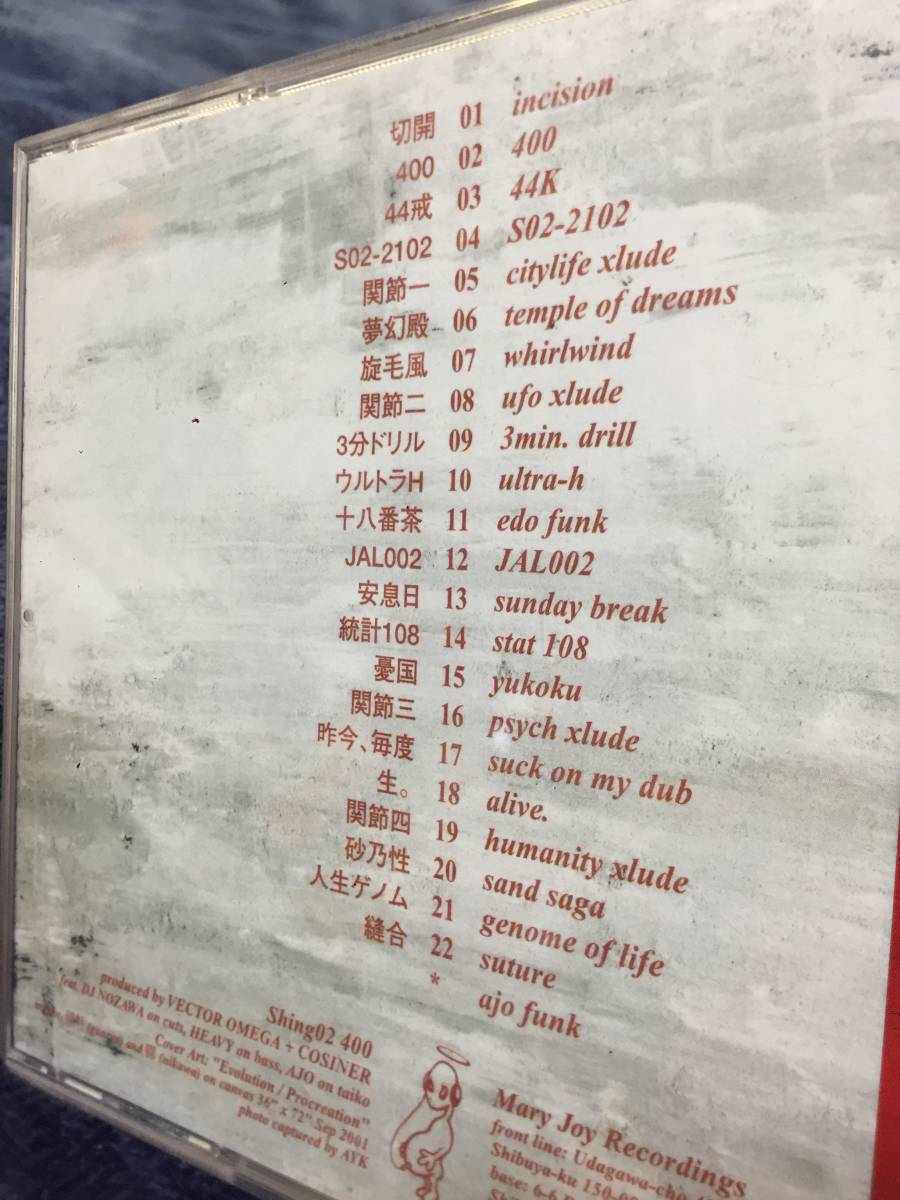 切開 01 incision
400 02 400
44戒 03 44K
S02-2102 04 S02-2102
関節一 05 citylife xlude
夢幻殿 06 temple of dreams
旋毛風 07 whirlwind
関節二 08 ufo xlude
3分ドリル 09 3min. drill
ウルトラH 10 ultra-h
十八番茶 11 edo funk
JAL002 12 JAL002
安息日 13 sunday break
統計108 14 stat 108
憂国 15 yukoku
関節三 16 psych xlude
昨今、毎度 17 suck on my dub
生。 18 alive.
関節四 19 humanity xlude
砂乃性 20 sand saga
人生ゲノム 21 genome of life
縫合 22 suture
* ajo funk
Shing02 400
produced by VECTOR OMEGA + COSINER
feat. DJ NOZAWA on cuts, HEAVY on bass, AJO on taiko
Cover Art: "Evolution / Procreation"
and (nikawa) on canvas 36" x 72" Sep 2001
photo captured by AYK
Mary Joy Recordings
front line: Udagawa-cho
Shibuya-ku 150-00
base: 6-6